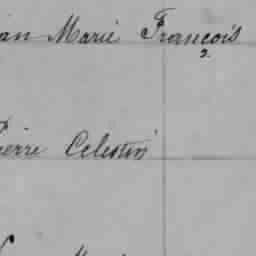 an Marie François
ierre Celestin